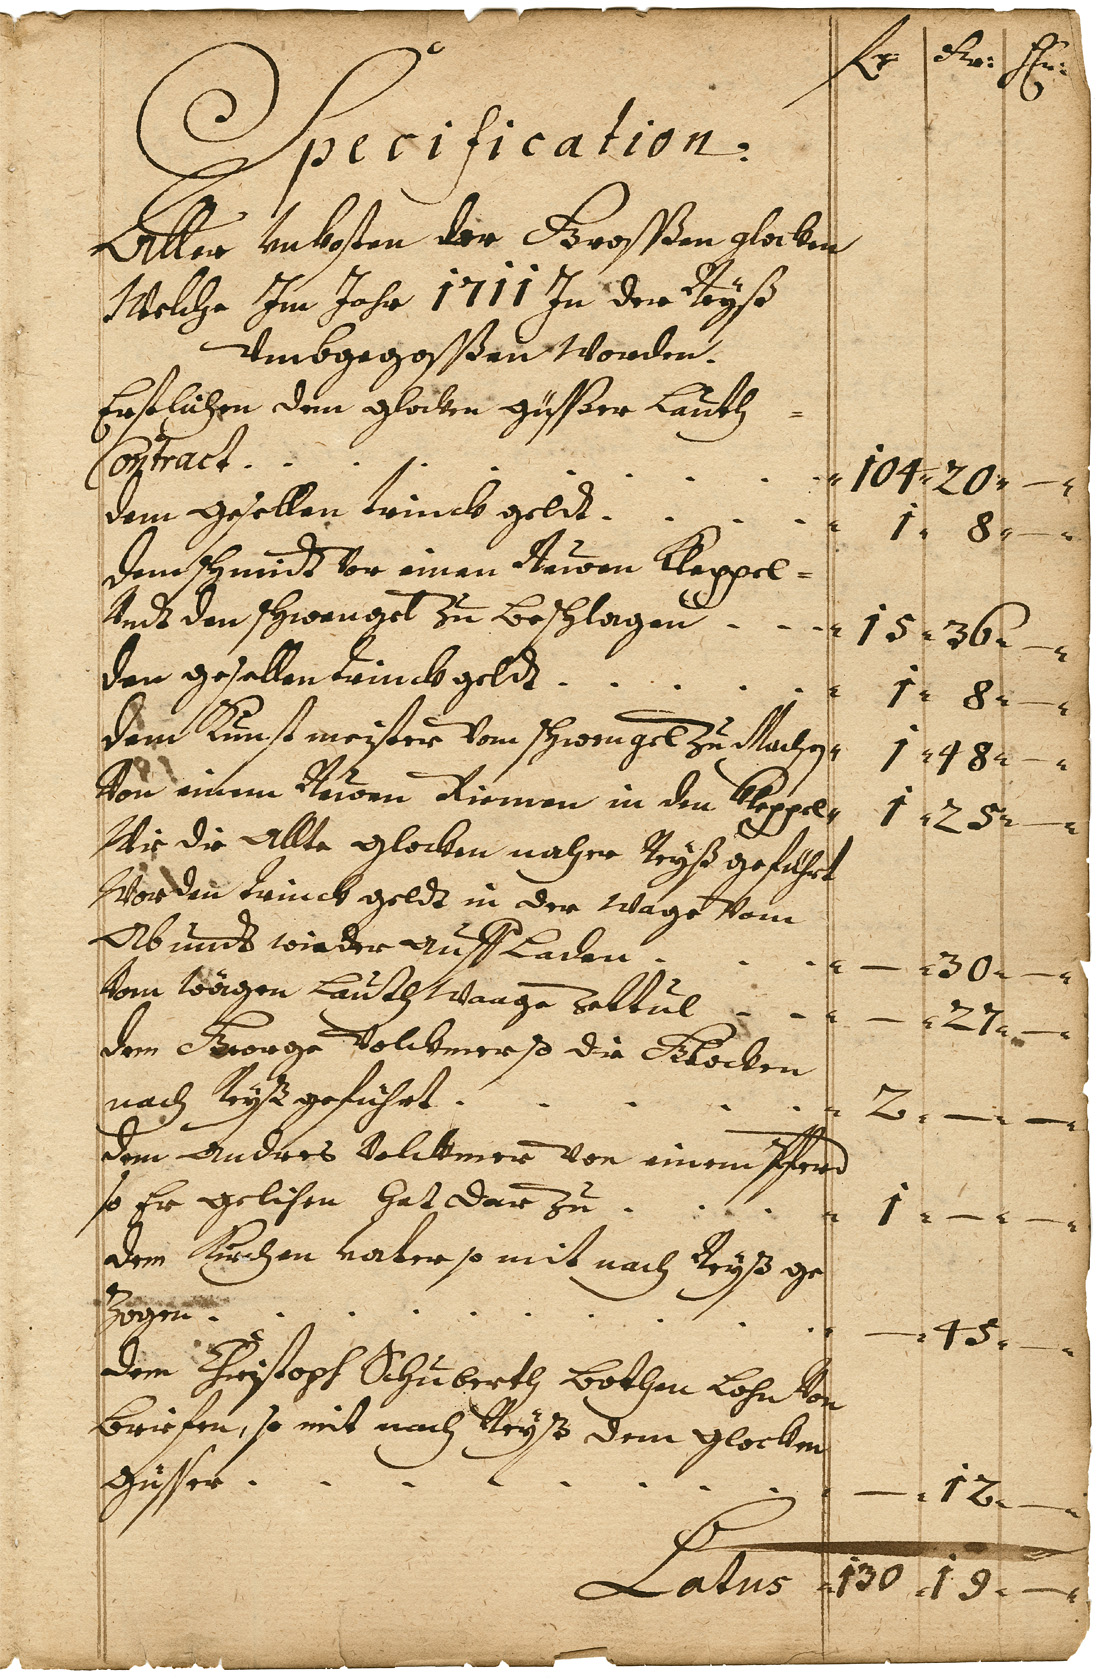 fl: Kr: Hr:
Specification:
Aller Vnkosten der Grossen glocken
Welche Im Jahr 1711 In der Neyß
Vmbgegossen Worden.
Erstlichen dem glocken güsser Lauth =
Contract . . . . . . . . " 104 " 20 " — "
dem gesellen trinck geldt . . . . " 1 " 8 " — "
dem schmidt Vor einen Neuen Kleppel =
Vndt den schwengel Zu beschlagen . . . " 15 " 36 " — "
den gesellen trinck geldt . . . . . " 1 " 8 " — "
dem Kunst meister Vom schwengel Zu Machen " 1 " 48 " — "
Von einem Neuen Riemen in den Kleppel " 1 " 25 " — "
Wie die Alte glocken naher Neyß geführt
Worden trinck geldt in der Wage Vom
Ab undt wieder auff Laden . . . " — " 30 " — "
Vom Wägen Lauth Waage Zettul . . " — " 27 " — "
dem George Volckmer so die Glocken
nach Neyß geführt . . . . . " 2 " — " — "
dem Andres Volckmer Von einem Pferd
so Er gelihen hat dar Zu . . . . " 1 " — " — "
dem Kirchen vater so mit nach Neyß ge
Zogen . . . . . . . . . " — " 45 " — "
dem Christoph Schuberth Bothen Lohn Von
brieffen, so mit nach Neyß dem glocken
güsser . . . . . . . . " — " 12 " — "
Latus " 130 " 19 " — "